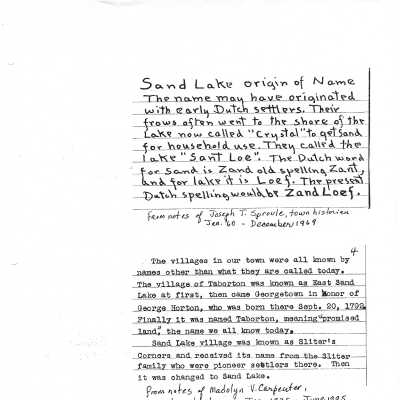 Sand Lake origin of Name
The name may have originated
with early Dutch settlers. Their
fraws often went to the shore of the
Lake now called "Crystal" to get sand
for household use. They called the
lake "Sant Loe". The Dutch word
for Sand is Zand old spelling Zant,
and for lake it is Loef. The present
Dutch spelling would be Zand Loef.
from notes of Joseph T. Sproule, town historian
Jan. 60 - December 1969
4
The villages in our town were all known by
names other than what they are called today.
The village of Taborton was known as East Sand
Lake at first, then came Georgetown in honor of
George Horton, who was born there Sept. 20, 1792.
Finally it was named Taborton, meaning "promised
land," the name we all know today.
Sand Lake village was known as Sliter's
Corners and received its name from the Sliter
family who were pioneer settlers there. Then
it was changed to Sand Lake.
From notes of Madolyn V. Carpenter,
June 1995